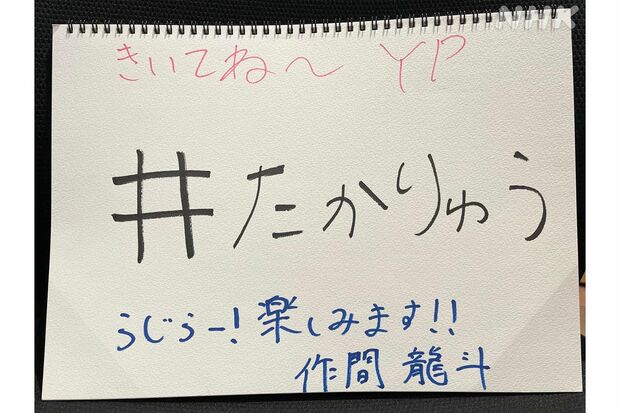 NHK
きいてね〜 YP
#たかりゅう
らじらー!楽しみます!!
作間 龍斗